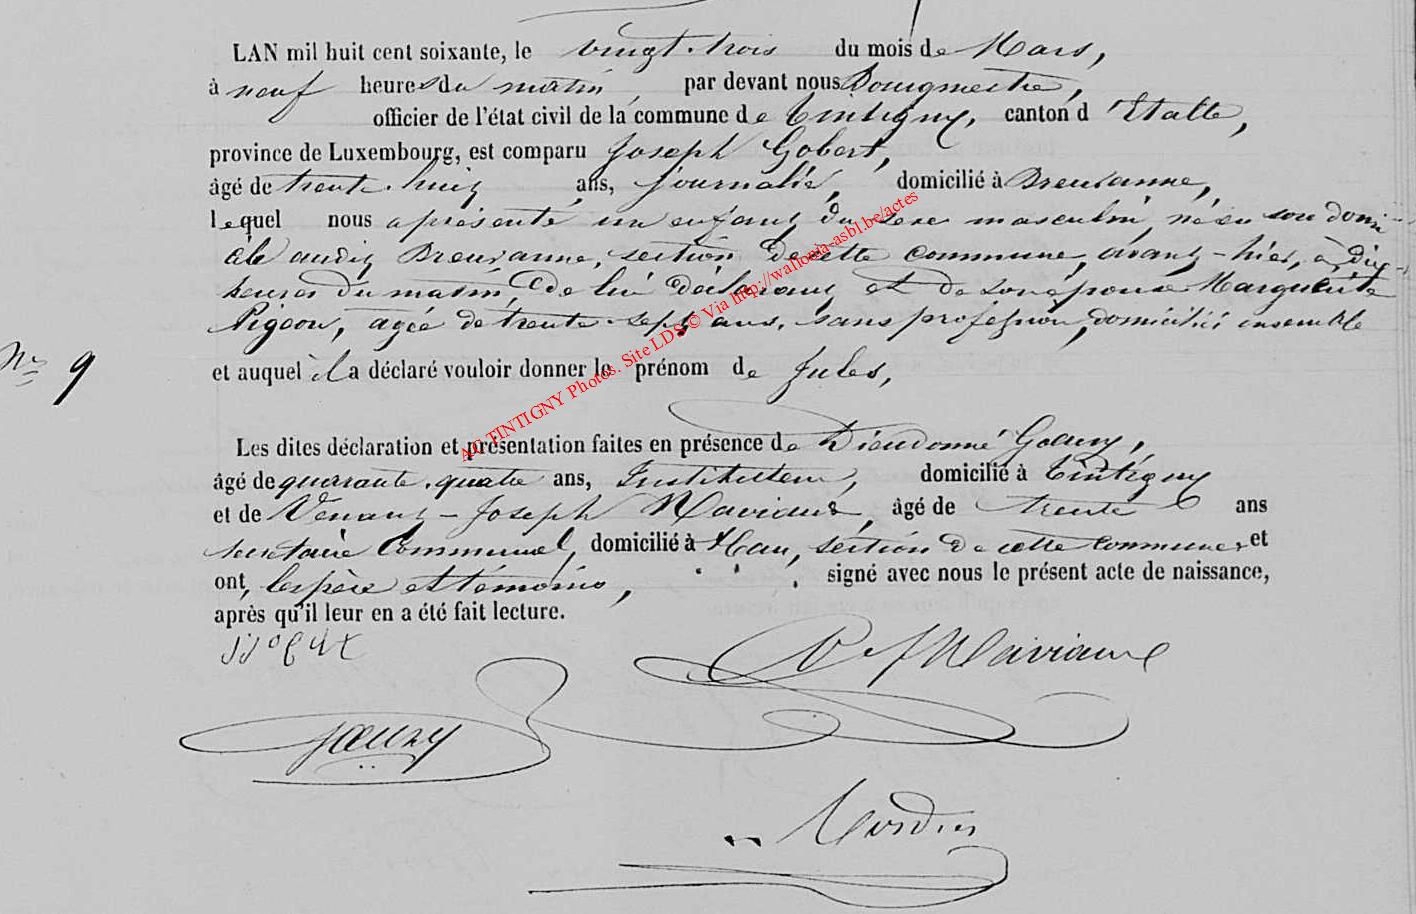 LAN mil huit cent soixante, le vingt-trois du mois de Mars,
à neuf heures du matin, par devant nous Bourgmestre,
officier de l'état civil de la commune de Tintigny, canton d'Etalle,
province de Luxembourg, est comparu Joseph Gobert,
âgé de trente-huit ans, journalier, domicilié à Breuvanne,
lequel nous a présenté un enfant du sexe masculin, né en son domi-
cile audit Breuvanne, section de cette commune, avant-hier, à dix
heures du matin, de lui déclarant et de son épouse Marguerite
Pigeon, agée de trente-sept ans, sans profession, domiciliés ensemble
N° 9
et auquel il a déclaré vouloir donner le prénom de Jules,
Les dites déclaration et présentation faites en présence de Dieudonné Goury,
âgé de quarante-quatre ans, Instituteur, domicilié à Tintigny
et de Venant-Joseph Maviaux, âgé de trente ans
secrétaire Communal, domicilié à Han, section de cette commune et
ont, les père et témoins, signé avec nous le présent acte de naissance,
après qu'il leur en a été fait lecture.
AC TINTIGNY Photos. Site LDS © Via http://wallonia-asbl.be/actes